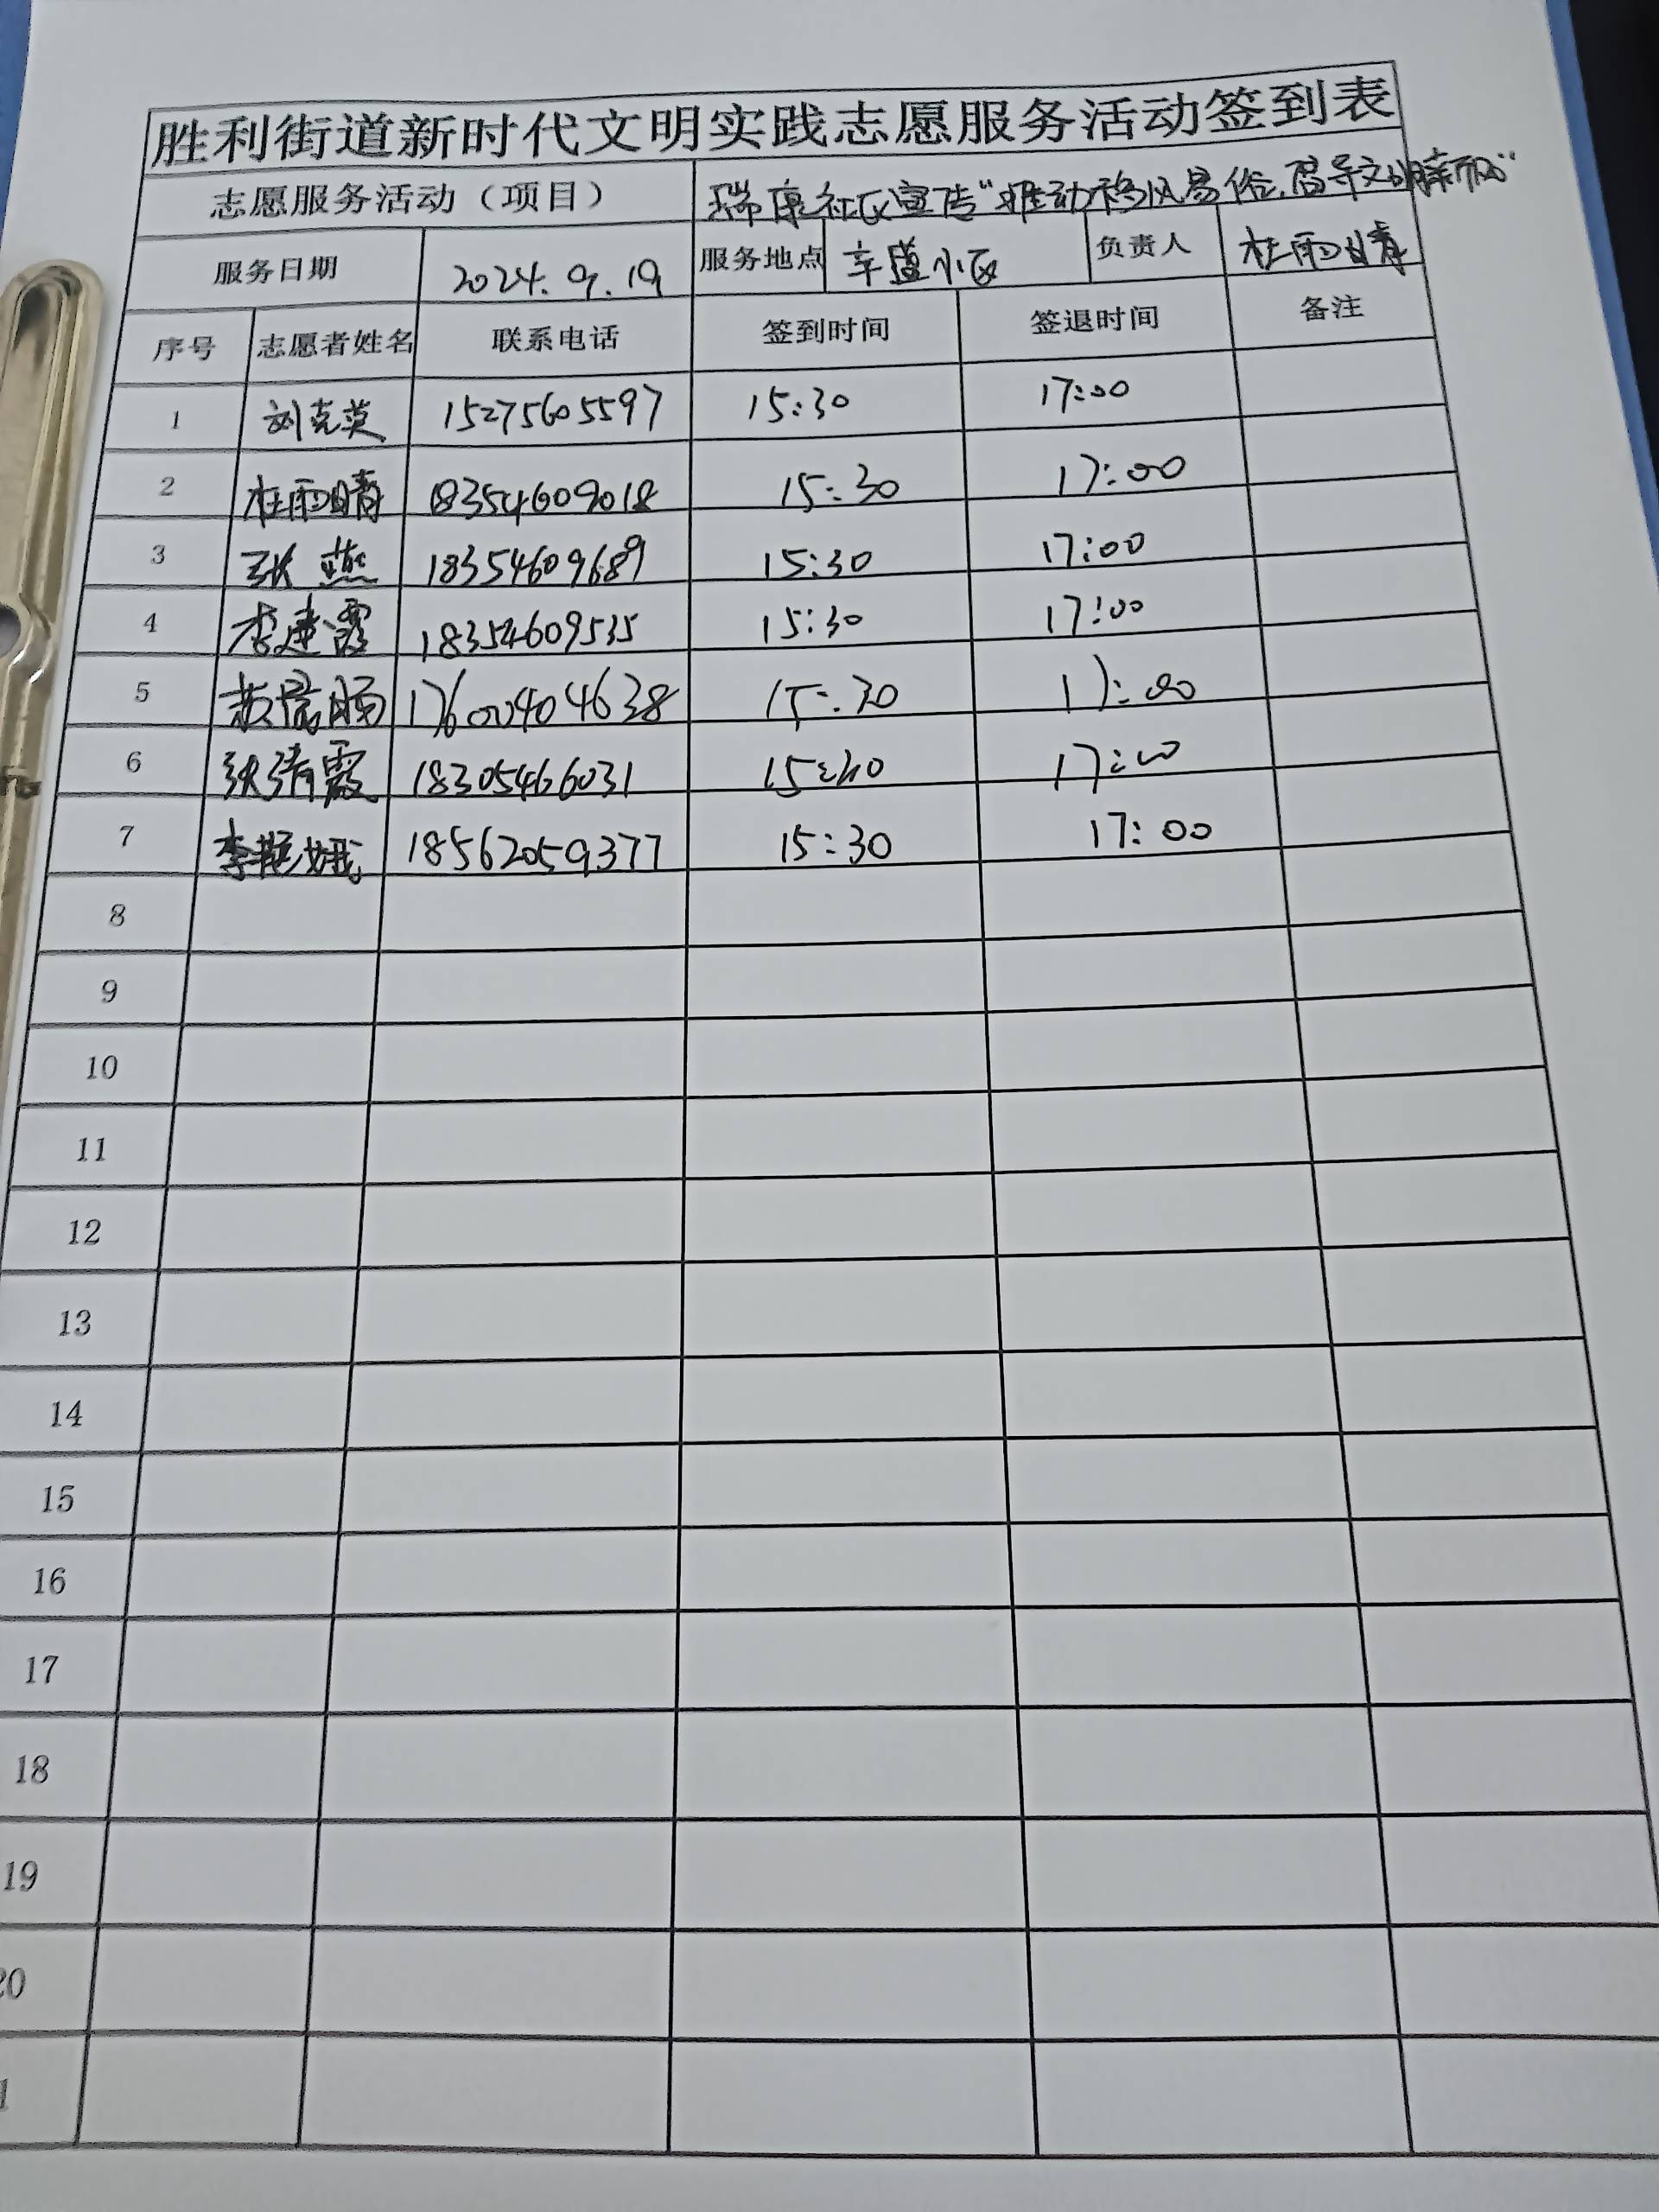 胜利街道新时代文明实践志愿服务活动签到表
志愿服务活动（项目） 瑞康社区宣传“推动移风易俗,倡导文明新风”
服务日期 2024.9.19 服务地点 辛盛小区 负责人 杜雨晴
序号 志愿者姓名 联系电话 签到时间 签退时间 备注
1 刘克英 15275605597 15:30 17:00
2 杜雨晴 18354609018 15:30 17:00
3 张燕 18354609689 15:30 17:00
4 李建霞 18354609535 15:30 17:00
5 17600404638 15:30 17:00
6 张清霞 18305466031 17:00
7 李艳娥 18562059377 15:30 17:00
8
9
10
11
12
13
14
15
16
17
18
19
20
1